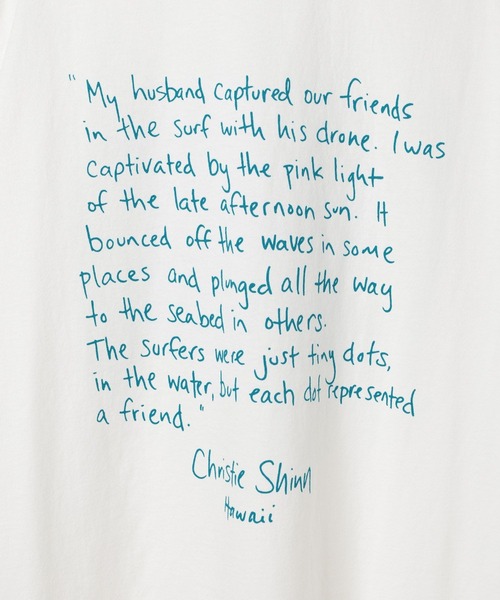 "My husband captured our friends
in the surf with his drone. I was
captivated by the pink light
of the late afternoon sun. It
bounced off the waves in some
places and plunged all the way
to the seabed in others.
The surfers were just tiny dots,
in the water, but each dot represented
a friend."
Christie Shinn
Hawaii